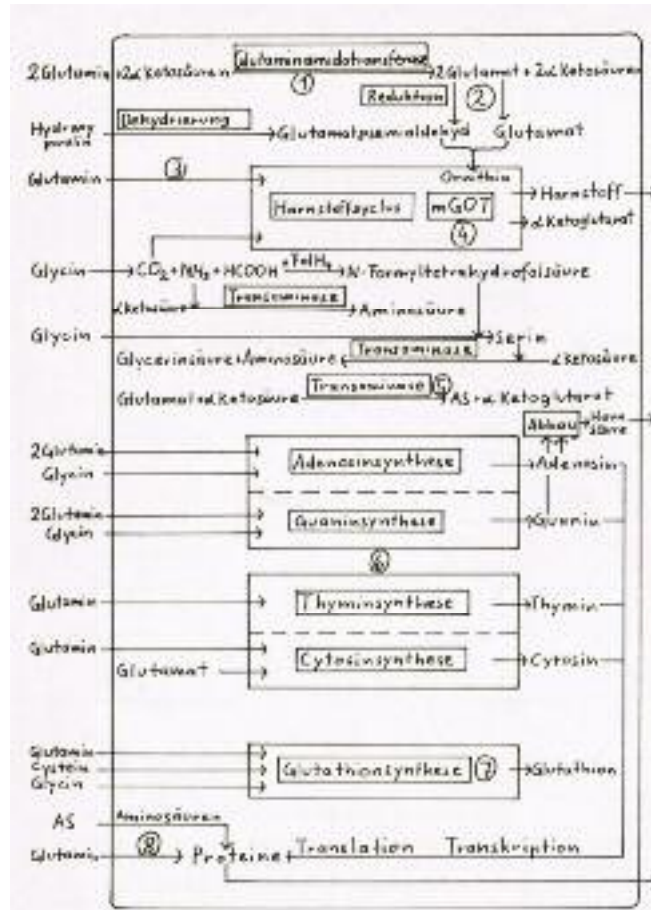 Glutaminamidotransferase
2Glutamin 2αKetosäuren 2Glutamat + 2αKetosäuren
① ②
Reduktion
Dehydrierung
Hydroxyprolin Glutamatsemialdehyd Glutamat
Glutamin ③
Ornithin
Harnstoffzyclus mGOT Harnstoff
④ αKetoglutarat
Glycin CO2 + NH3 + HCOOH FolH4 N-Formyltetrahydrofolsäure
αKetosäure Transaminase Aminosäure
Glycin Serin
Glycerinsäure + Aminosäure Transaminase αKetosäure
Glutamat + αKetosäure Transaminase ⑤ AS + αKetoglutarat
Abbau Harnsäure
2Glutamin
Glycin Adenosinsynthese Adenosin
2Glutamin
Glycin Guaninsynthese Guanin
⑥
Glutamin Thyminsynthese Thymin
Glutamin
Glutamat Cytosinsynthese Cytosin
Glutamin
Cystein Glutathionsynthese ⑦ Glutathion
Glycin
AS Aminosäuren
Glutamin ⑧ Proteine Translation Transkription